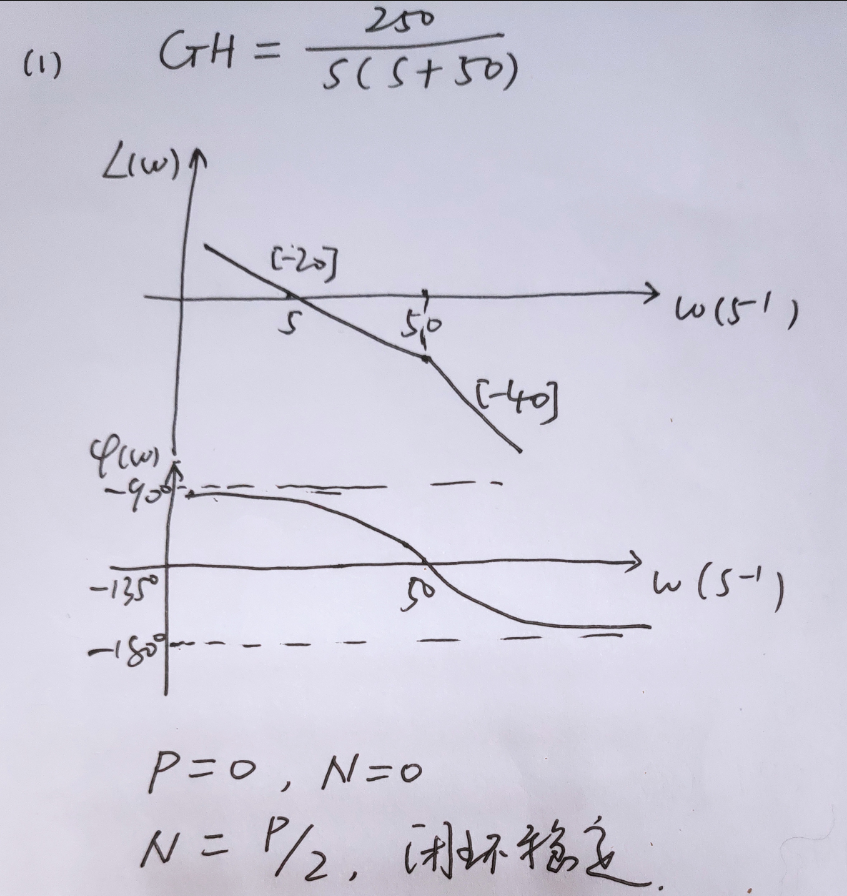 (1) GH = 250 / S(S+50)
L(ω)
[-20]
5
50
ω(s⁻¹)
[-40]
φ(ω)
-90°
-135°
50
ω(s⁻¹)
-180°
P=0, N=0
N = P/2, 闭环稳定.